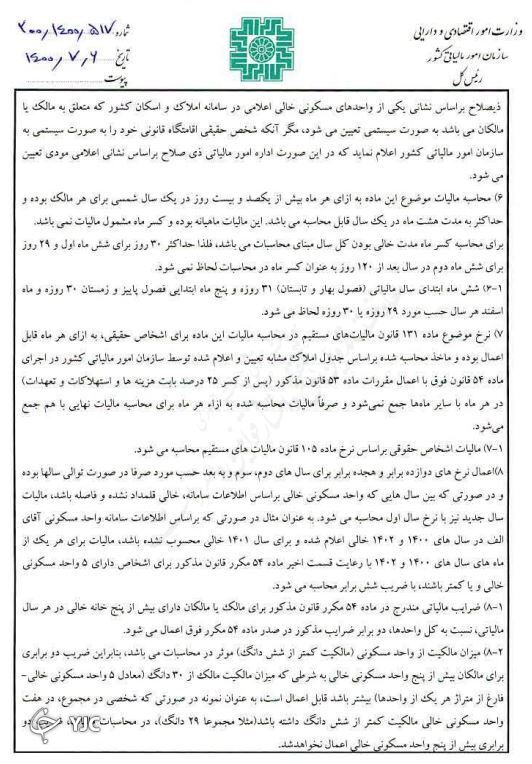 وزارت امور اقتصادی و دارایی
سازمان امور مالیاتی کشور
رئیس کل
شماره ۲۰۰/۱۴۰۰/۵۱۷
تاریخ ۱۴۰۰/۷/۶
پیوست
ذیصلاح براساس نشانی یکی از واحدهای مسکونی خالی اعلامی در سامانه املاک و اسکان کشور که متعلق به مالک یا
مالکان می باشد به صورت سیستمی تعیین می شود، مگر آنکه شخص حقیقی اقامتگاه قانونی خود را به صورت سیستمی به
سازمان امور مالیاتی کشور اعلام نماید که در این صورت اداره امور مالیاتی ذی صلاح براساس نشانی اعلامی مودی تعیین
می شود.
۶) محاسبه مالیات موضوع این ماده به ازای هر ماه بیش از یکصد و بیست روز در یک سال شمسی برای هر مالک بوده و
حداکثر به مدت هشت ماه در یک سال قابل محاسبه می باشد. این مالیات ماهیانه بوده و کسر ماه مشمول مالیات نمی باشد.
برای محاسبه کسر ماه مدت خالی بودن کل سال مبنای محاسبات می باشد، فلذا حداکثر ۳۰ روز برای شش ماه اول و ۲۹ روز
برای شش ماه دوم در سال بعد از ۱۲۰ روز به عنوان کسر ماه در محاسبات لحاظ نمی شود.
۶-۱) شش ماه ابتدای سال مالیاتی (فصول بهار و تابستان) ۳۱ روزه و پنج ماه ابتدایی فصول پاییز و زمستان ۳۰ روزه و ماه
اسفند هر سال حسب مورد ۲۹ روزه یا ۳۰ روزه لحاظ می شود.
۷) نرخ موضوع ماده ۱۳۱ قانون مالیات‌های مستقیم در محاسبه مالیات این ماده برای اشخاص حقیقی، به ازای هر ماه قابل
اعمال بوده و ماخذ محاسبه شده براساس جدول املاک مشابه تعیین و اعلام شده توسط سازمان امور مالیاتی کشور در اجرای
ماده ۵۴ قانون فوق با اعمال مقررات ماده ۵۳ قانون مذکور (پس از کسر ۲۵ درصد بابت هزینه ها و استهلاکات و تعهدات)
در هر ماه با سایر ماه‌ها جمع نمی‌شود و صرفاً مالیات محاسبه شده به ازاء هر ماه برای محاسبه مالیات نهایی با هم جمع
می‌شود.
۷-۱) مالیات اشخاص حقوقی براساس نرخ ماده ۱۰۵ قانون مالیات های مستقیم محاسبه می شود.
۸)اعمال نرخ های دوازده برابر و هجده برابر برای سال های دوم، سوم و به بعد حسب مورد صرفا در صورت توالی سالها بوده
و در صورتی که بین سال هایی که واحد مسکونی خالی براساس اطلاعات سامانه، خالی قلمداد نشده و فاصله باشد، مالیات
سال جدید نیز با نرخ سال اول محاسبه می شود. به عنوان مثال در صورتی که براساس اطلاعات سامانه واحد مسکونی آقای
الف در سال های ۱۴۰۰ و ۱۴۰۲ خالی اعلام شده و برای سال ۱۴۰۱ خالی محسوب نشده باشد، مالیات برای هر یک از
ماه های سال های ۱۴۰۰ و ۱۴۰۲ با رعایت قسمت اخیر ماده ۵۴ مکرر قانون مذکور برای اشخاص دارای ۵ واحد مسکونی
خالی و یا کمتر باشند، با ضریب شش برابر محاسبه می شود.
۸-۱) ضرایب مالیاتی مندرج در ماده ۵۴ مکرر قانون مذکور برای مالک یا مالکان دارای بیش از پنج خانه خالی در هر سال
مالیاتی، نسبت به کل واحدها، دو برابر ضرایب مذکور در صدر ماده ۵۴ مکرر فوق اعمال می شود.
۸-۲) میزان مالکیت از واحد مسکونی (مالکیت کمتر از شش دانگ) موثر در محاسبات می باشد، بنابراین ضریب دو برابری
برای مالکان بیش از پنج واحد مسکونی خالی به شرطی که میزان مالکیت مالک از ۳۰ دانگ (معادل ۵ واحد مسکونی خالی-
فارغ از متراژ هر یک از واحدها) بیشتر باشد قابل اعمال است، به عنوان نمونه در صورتی که شخصی در مجموع، در هفت
واحد مسکونی خالی مالکیت کمتر از شش دانگ داشته باشد(مثلا مجموعا ۲۹ دانگ)، در محاسبات مالیات، ضریب دو
برابری بیش از پنج واحد مسکونی خالی اعمال نخواهدشد.
YJC